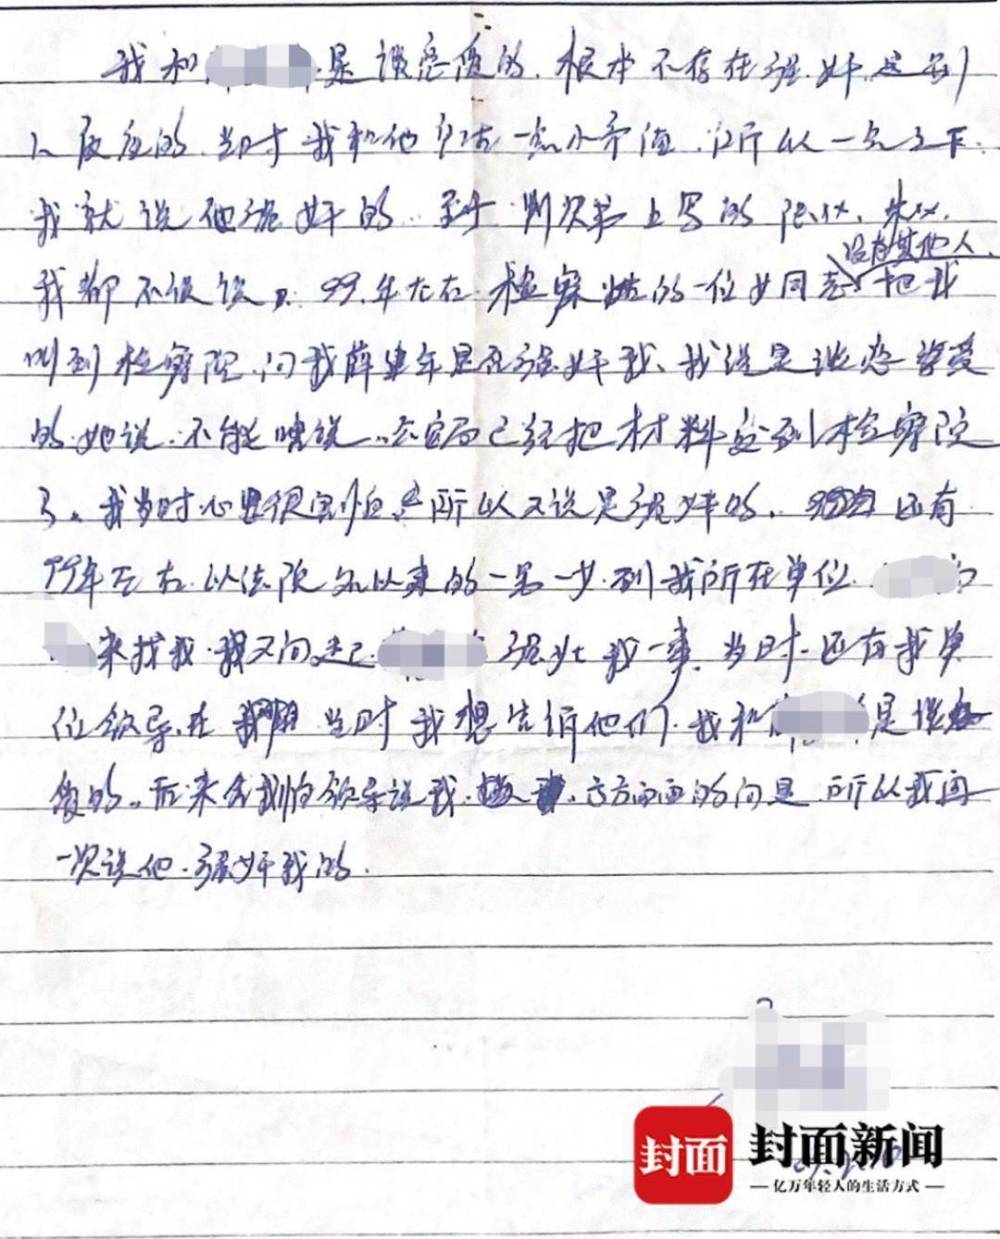 我和 是谈恋爱的.根本不存在强奸.是别
人反应的.当时我和他家有一点小矛盾.所以一气之下.
我就说他强奸的.至于判决书上写的陈××.朱××.
我都不认识.99年左右.检察院的一位女同志把我
没有其他人
叫到检察院.问我薛 年是否强奸我.我说是谈恋爱
的.她说.不能瞎说.公安局已经把材料交到检察院
了.我当时心里很害怕.所以又说是强奸的.还有
99年左右.以法院 为首的一男一女到我所在单位
来找我.我又问起 强奸我一事.当时.还有我单
位领导.在 当时我想告诉他们.我和 是谈恋
爱的.后来我怕领导说我. 方方面面的问题.所以我再
一次说他.强奸我的.
封面
封面新闻
亿万年轻人的生活方式